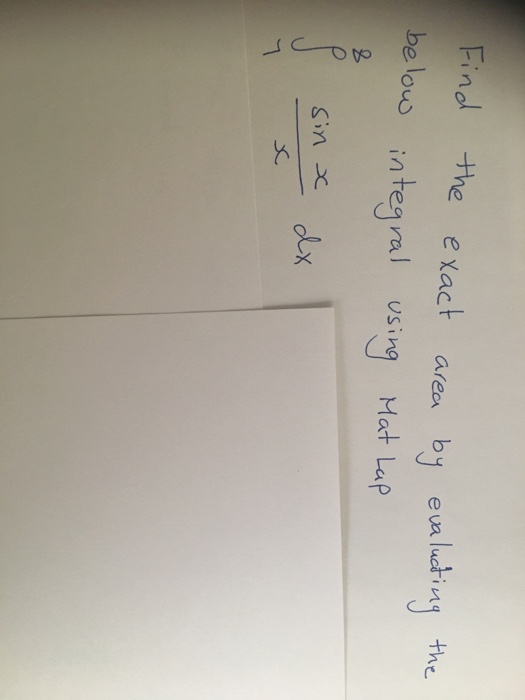 Find the exact area by evaluating the
below integral using Mat Lap
∫₄⁸ sin x / x dx